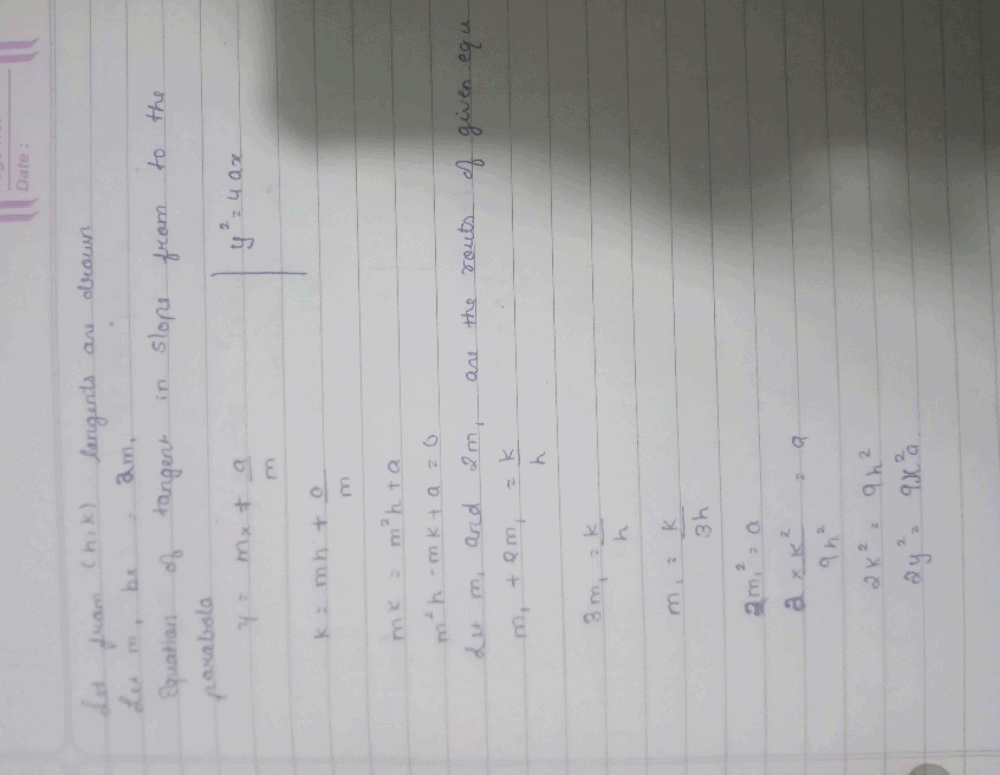 Date :
Let from (h,k) tangents are drawn
Let m₁ be , 2m₁
Equation of tangent in slope from to the
parabola
y = mx + a/m | y² = 4ax
k = mh + a/m
mk = m²h + a
m²h - mk + a = 0
Let m₁ and 2m₁ are the routs of given equ
m₁ + 2m₁ = k/h
3m₁ = k/h
m₁ = k/3h
2m₁² = a
2 × k²/9h² = a
2k² = 9h²
2y² = 9x²a